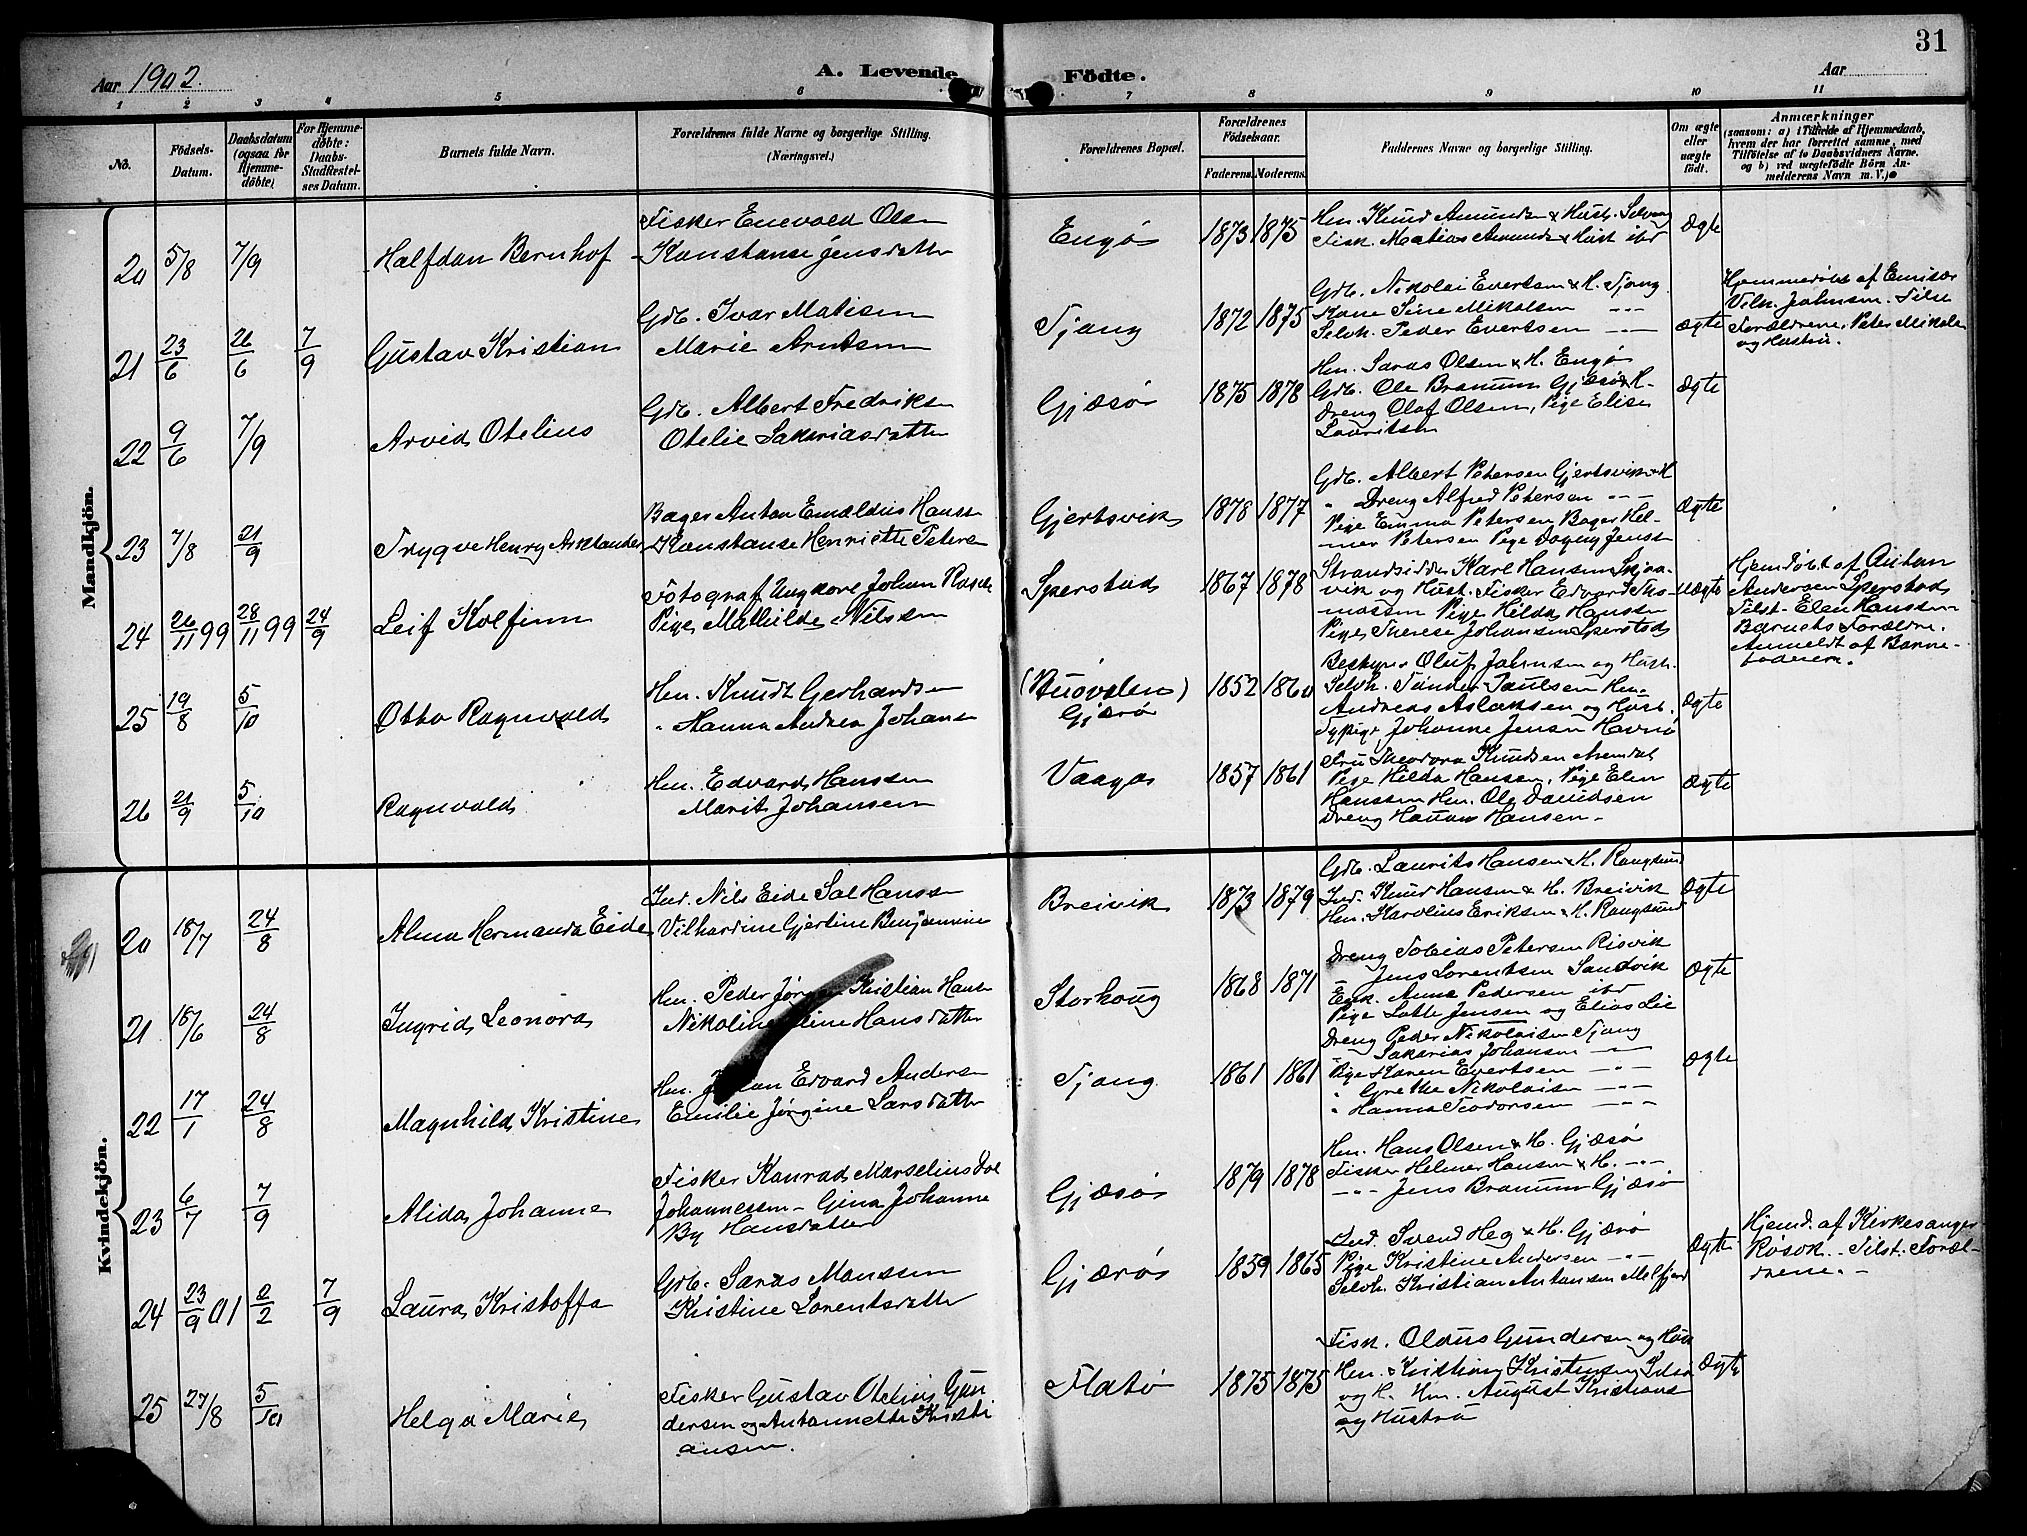 31
Aar 1902.
A. Levende Fødte.
Aar
1 2 3 4 5 6 7 8 9 10 11
No.
Fødsels-Datum.
Daabsdatum (ogsaa for Hjemme-døbte)
For Hjemme-døbte: Daabs-Stadfæstel-ses Datum.
Barnets fulde Navn.
Forældrenes fulde Navne og borgerlige Stilling. (Næringsvei.)
Forældrenes Bopæl.
Forældrenes Fødselsaar.
Faderens. Moderens.
Faddernes Navne og borgerlige Stilling.
Om ægte eller uægte født.
Anmærkninger
(saasom: a) i Tilfælde af Hjemmedaab,
hvem der har forrettet samme, med
Tilføielse af to Daabsvidners Navne.
og b) ved uægtefødte Børn An-
melderens Navn m. V.)
Mandkjøn.
20 5/8 7/9 Halfdan Bernhof
Fisker Enevold Olsen
Konstanse Jensdatter
Engø 1873 1875
Hm. Knud Amundsen & Hust. Selvaag
Fisk. Matias Amunds & Hust ibd
Ægte
21 23/6 26/6 7/9 Gustav Kristian
Gdb. Ivar Matisen
Marie Arntsen
Tjong 1872 1875
Gdb. Nikolai Evertsen & H. Tjong
Kone Sine Mikalsen
Selvh. Peder Evertsen
Ægte
Hjemmedøbt af Emisær
Vilh. Johnsen. Tilst
Forældrene, Peter Mikals
og Hustru.
22 9/6 7/9 Arvid Otelius
Gdb. Albert Fredriksen
Otelie Sakariasdatter
Gjæsø 1875 1878
Hm. Saras Olsen & H. Engø
Gdb. Ole Bramum Gjæsø & H.
Dreng Olaf Olsen, Pige Elise
Lauritsen
Ægte
23 7/8 21/9 Trygve Henry Asklander
Bager Anton Emaldius Hanss
Konstanse Henriette Peters
Gjertsvik 1878 1877
Gdb. Albert Petersen Gjertsvik & H
" Dreng Alfred Petersen
Pige Emma Petersen Bager Hel-
mer Petersen Pige Dagny Jenss
Ægte
24 26/11 99 28/11 99 24/9 Leif Kolfinn
Fotograf Ungkarl Johan Rasch
Pige Mathilde Nilssen
Sperstad 1867 1878
Strandsidder Karl Hansen Skjaa-
vik og Hust. Fisker Edvard Tho-
massen Pige Hilda Hanssen
Pige Therese Johansen Sperstad
Uægte
Hjemdøbt af Anton
Andersen Sperstad
Tilst. Elen Hanssen
Barnets Forældre.
Anmeldt af Barne-
faderen.
25 19/8 5/10 Otto Ragnvald
Hm. Knudt Gerhardsen
" Hanna Andrea Johans
Gjærø 1852 1860
Bestyrer Oluf Johnsen og Hust.
Selvh. Tønder Paulsen Hm.
Andreas Aslaksen og Hust.
Sypige Johanne Jensen Havnø
Ægte
26 21/9 5/10 Ragnvald
Hm. Edvard Hanssen
Marit Johansen
Vaaga 1857 1861
Fru Theodora Knudsen
Pige Hilda Hansen, Pige Elen
Hanssen Hm. Ole Davidsen
Dreng Hansen
Ægte
Kvindekjøn.
20 18/7 24/8 Alma Hermanda Eide
Ind. Nils Eide Sal Hanss
Vilhardine Gjertine Benjamins
Breivik 1873 1879
Gdb. Laurits Hansen & H. Rangsund
Ind. Knud Hansen & H. Breivik
Hm. Karolius Eriksen & H. Rangsund
Ægte
21 18/6 24/8 Ingrid Leonora
Hm. Peder Kristian Hans
Hansdatter
Storhoug 1868 1871
Dreng Tobias Petersen Risvik
" Jens Lorentsen Sandvik
Enk. Anna Pedersen ibd
Pige Lotte Jensen og Elias Lie
Ægte
22 17/1 24/8 Magnhild Kristine
Hm. Edvard Anders
Emilie Jørgine Larsdatter
Tjong 1861 1861
Dreng Peder Nikolaisen Tjong
" Sakarias Johansen
Pige Karen Evertsen
" Grethe Nikolaisen
" Hanna Teodorsen
Ægte
23 6/7 7/9 Alida Johanne
Fisker Konrad Marselius Dal
Johannessen Gina Johanne
By Hansdatter
Gjæsø 1879 1878
Hm. Hans Olsen & H. Gjæsø
Fisker Helmer Hansen & H.
Jens Bramum Gjæsø
24 23/9 01 2/2 7/9 Laura Kristoffa
Gdb. Saras Monssen
Kristine Lorentsdatter
Gjærø 1859 1865
Ind. Svend Heg & H. Gjærø
Pige Kristine Andersen
Selvh. Kristian Antonsen Melfjord
Ægte
Hjemd. af Kirkesanger
Røsok. Tilst. Foræl-
drene.
25 27/8 5/10 Helga Marie
Fisker Gustav Otelius Gun
dersen og Antonette Kristi
ansen.
Flatø 1875 1875
Fisk. Olaus Gundersen og Hus
Hm. Kristian Kristensen
og H. Hm. August Kristians
og Hustru
Ægte